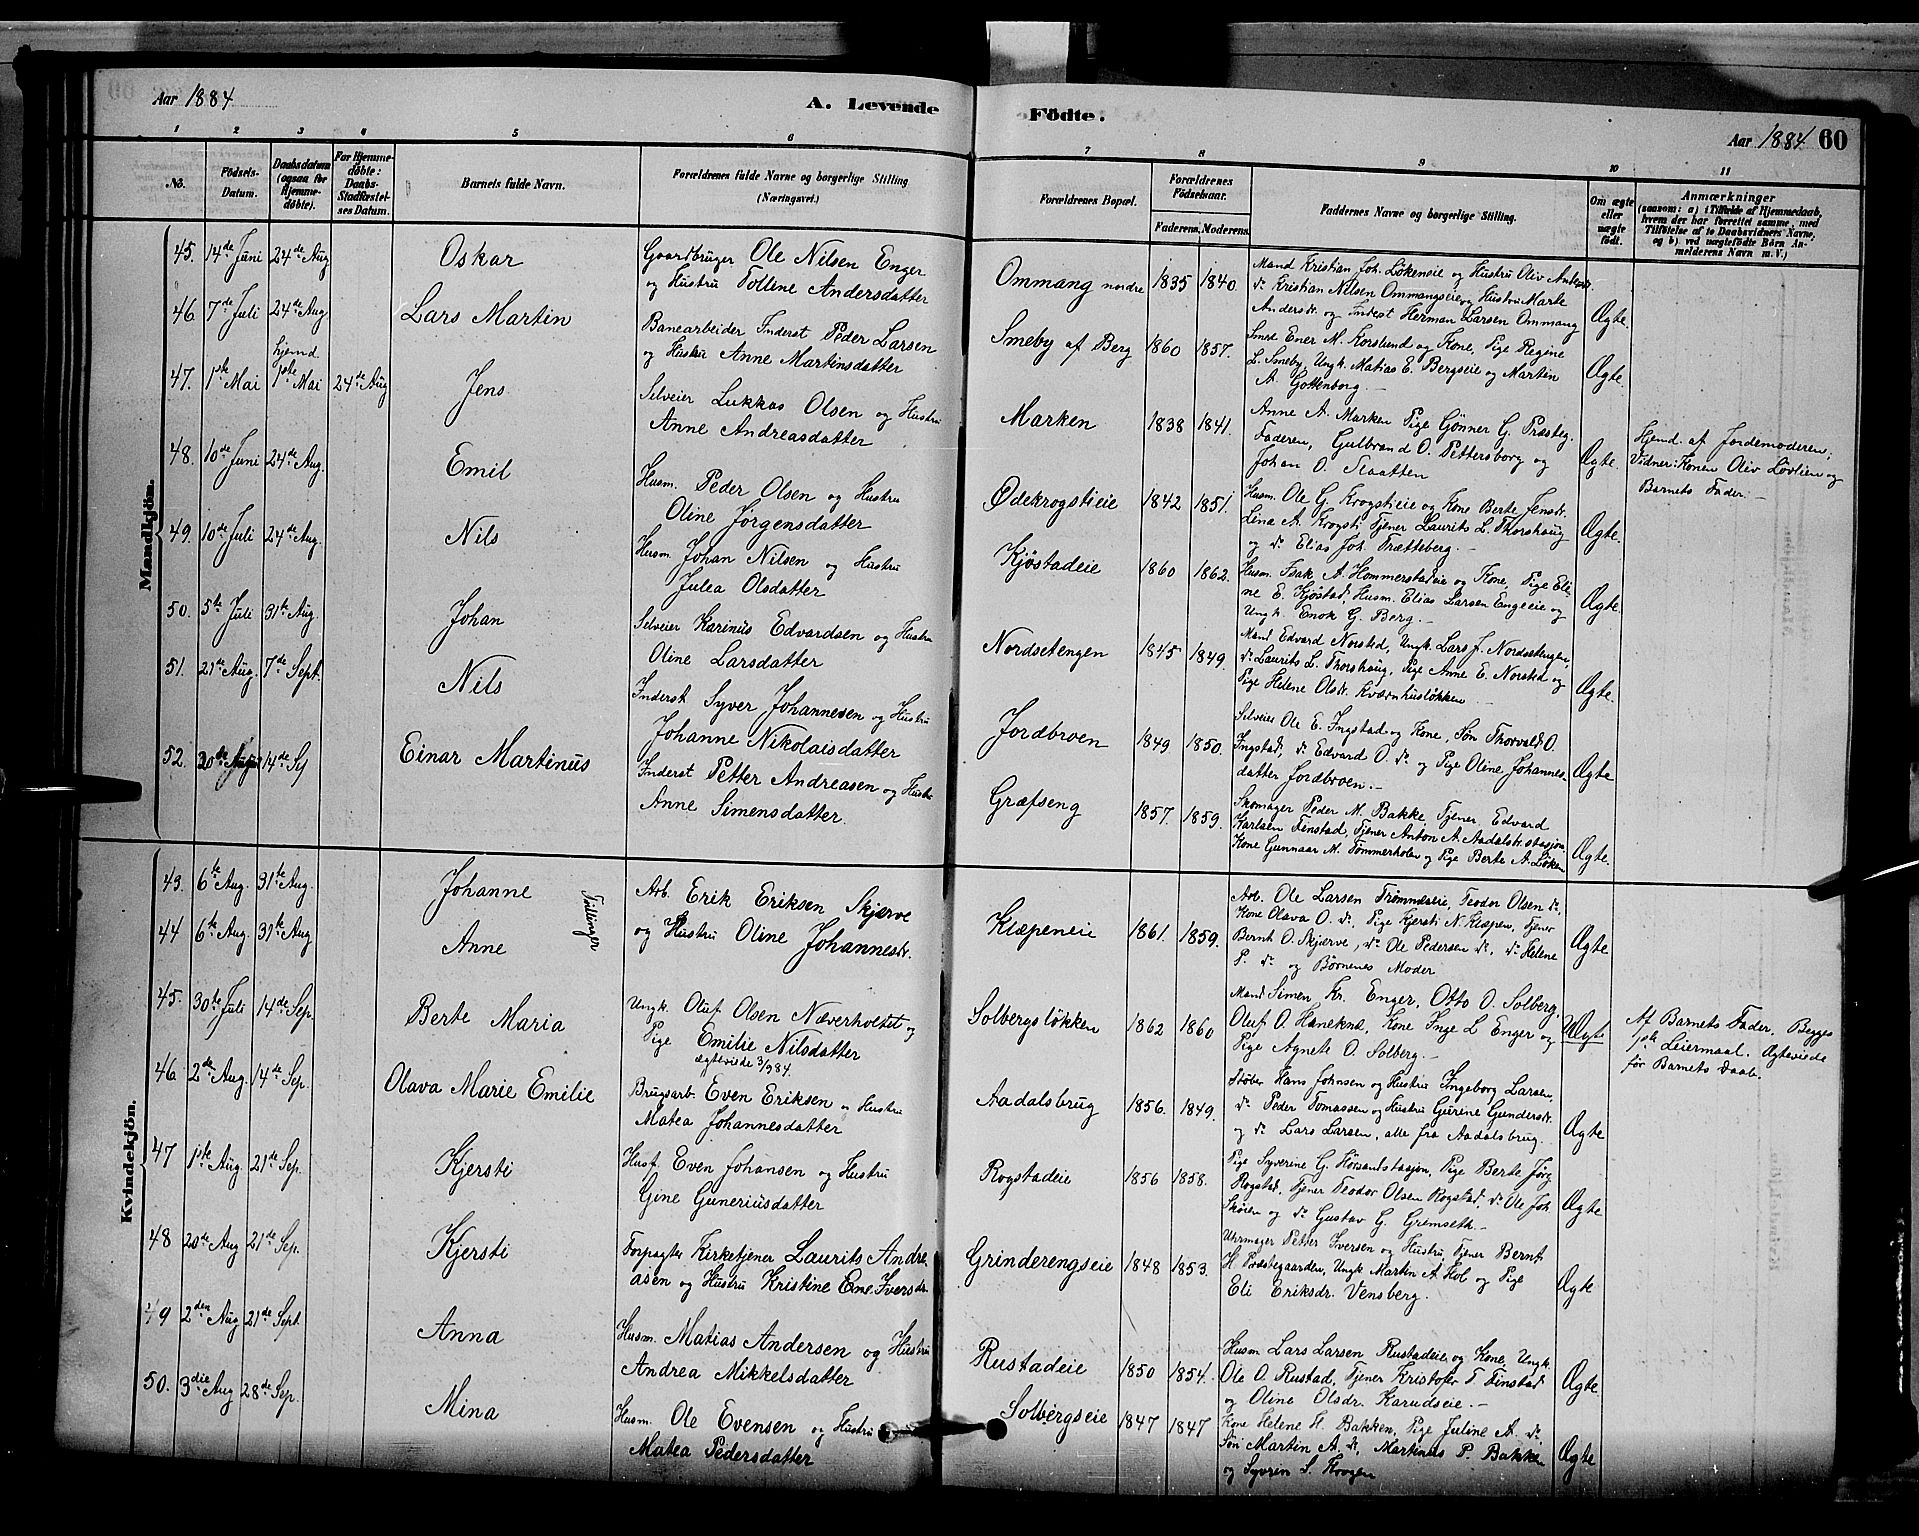 Aar 1884
A. Levende
Fødte.
Aar 1884 60
1 2 3 4 5 6
7 8 9 10 11
No.
Fødsels-
Datum.
Daabsdatum
(ogsaa for
Hjemme-
døbte).
For Hjemme-
døbte:
Daabs-
Stadfæstel-
ses Datum.
Barnets fulde Navn.
Forældrenes fulde Navne og borgerlige Stilling
(Næringsvei.)
Forældrenes Bopæl.
Forældrenes
Fødselsaar.
Faderens. Moderens.
Faddernes Navne og borgerlige Stilling.
Om ægte
eller
uægte
født.
Anmærkninger
(saasom: a) i Tilfælde af Hjemmedaab,
hvem der har forrettet samme, med
Tilføielse af to Daabsvidners Navne,
og b) ved uægtefødte Børn An-
melderens Navn m. V.)
Mandkjøn.
45. 14de Juni 24de Aug Oskar
Gaardbruger Ole Nilsen Enger
og Hustru Tolline Andersdatter
Ommang nordre 1835 1840.
Mand Kristian Joh. Løkeneie og Hustru Oliv
do Kristian Nilsen Ommangseie og Hustru Marte
Andersdr. og Inderst Herman Larsen Ommang
Ægte.
46 7de Juli 24de Aug Lars Martin
Banearbeider Inderst Peder Larsen
og Hustru Anne Martinsdatter
Smeby af Berg 1860 1857.
Smed Ener M. Korslund og Kone, Pige Regine
L. Smeby, Ungk. Matias E. Bergseie og Martin
A. Gottenborg.
Ægte.
47. 1ste Mai hjemd. 1ste Mai 24de Aug Jens
Selveier Lukkas Olsen og Hustru
Anne Andreasdatter
Marken 1838 1841.
Anne A. Marken Pige Gønner G. Præsteg.
Faderen, Gulbrand O. Pettersborg og
Johan O. Staatten
Ægte.
Hjemd. af Jordemoderen;
Vidner: Konen Oliv Løvlien og
Barnets Fader.
48. 10de Juni 24de Aug. Emil
Husm. Peder Olsen og Hustru
Oline Jørgensdatter
Ødekrogstieie 1842 1851.
Husm. Ole G. Krogstieie og Kone Berte Jensdr.
Lina A. Krogsti Tjener Laurits L. Thorshaug
og do Elias Joh. Trætteberg.
Ægte.
49. 10de Juli 24de Aug. Nils
Husm. Johan Nilsen og Hustru
Julea Olsdatter
Kjøstadeie 1860 1862.
Husm. Isak A. Hommerstadeie og Kone, Pige Eli-
ne E. Kjøstad, Husm. Elias Larsen Engeeie og
Ungk. Enok G. Berg.
Ægte.
50. 5te Juli 31te Aug. Johan
Selveier Karinus Edvardsen og Hustru
Oline Larsdatter
Nordsetengen 1845 1849.
Mand Edvard Norsted, Ungk. Lars J. Nordsetengen,
do Laurits L. Thorshaug, Pige Anne E. Norsted og
Pige Helene Olsdr. Kværnhusløkken
Ægte.
51. 21de Aug. 7de Sept. Nils
Inderst Syver Johannesen og Hustru
Johanne Nikolaisdatter
Jordbroen 1849 1850.
Selveier Ole E. Ingstad og Kone, Søn Thorvald O.
Ingstad, do Edvard O. do og Pige Oline Johannes-
datter Jordbroen.
Ægte
52. 20de 14de Einar Martinus
Inderst Petter Andreasen og Hustru
Anne Simensdatter.
Græfseng 1857. 1859.
Skomager Peder M. Bakke, Tjener Edvard
Karlsen Finstad, Tjener Anton A. Aadalsbr. stasjon,
Kone Gunnaar M. Tømmerholen og Pige Berte A. Løken
Ægte.
Kvindekjøn.
43. 6te Aug. 31te Aug. Johanne
44 6te Aug. 31te Aug Anne
Tvillinger
Arb. Erik Eriksen Skjærve
og Hustru Oline Johannesdr.
Klæpeneie 1861. 1859.
Arb. Ole Larsen Trommeseie, Teodor Olsen do,
Kone Olava O. do, Pige Kjersti N. Klæpen, Tjener
Bernt O. Skjærve, do Ole Pedersen do, do Helene
P. do og Børnenes Moder
Ægte
45. 30te Juli 14de Sep. Berte Maria
Ungk. Oluf Olsen Næverholtet og
Pige Emilie Nilsdatter
ægteviede 3/9 84.
Solbergsløkken 1862 1860
Mand Simen Kr. Enger, Otto O. Solberg,
Oluf O. Haneknæ, Kone Inge L Enger og
Pige Agnete O. Solberg.
Uægte
Af Barnets Fader, Begges
1ste Leiermaal. Ægteviede
før Barnets Daab.
46. 2de Aug. 14de Sep. Olava Marie Emilie
Brugsarb. Even Eriksen og Hustru
Matea Johannesdatter
Aadalsbrug 1856. 1849.
Støber Hans Johnsen og Hustru Ingeborg Larsen,
do Peder Tomassen og Hustru Gurine Gundersdr.
og do Lars Larsen, alle fra Aadalsbrug.
Ægte
47 1ste Aug. 21de Sep. Kjersti
Husf. Even Johansen og Hustru
Gine Guneriusdatter
Rogstadeie 1856 1858.
Pige Syverine G. Hørsandstasjon, Pige Berte Jørg
Rogstad, Tjener Teodor Olsen Rogstad, do Ole Joh.
Skøien og do Gustav G. Gremseth.
Ægte
48 20de Aug 21de Sep. Kjersti
Forpagter Kirketjener Laurits Andre-
asen og Hustru Kristine Eme. Iversdr.
Grinderengseie 1848 1853.
Uhrmager Petter Iversen og Hustru, Tjener Bernt
H. Præstegaarden, Ungk Martin A. Hol og Pige
Eli Eriksdr. Vensberg.
Ægte
49 2den Aug 21de Sept. Anna
Husm. Matias Andersen og Hustru
Andrea Mikkelsdatter
Rustadeie 1850 1854.
Husm Lars Larsen Rustadeie og Kone, Ungk.
Ole O. Rustad, Tjener Kristofer T. Finstad
og Oline Olsdr. Karudseie.
Ægte
50. 3die Aug 28de Sep. Mina
Husm. Ole Evensen og Hustru
Matea Pedersdatter
Solbergseie 1847 1847
Kone Helene H. Bakken, Pige Juline A. do
Søn Martin A. do, Martinus P. Bakken
og Syvren S. Krogen
Ægte